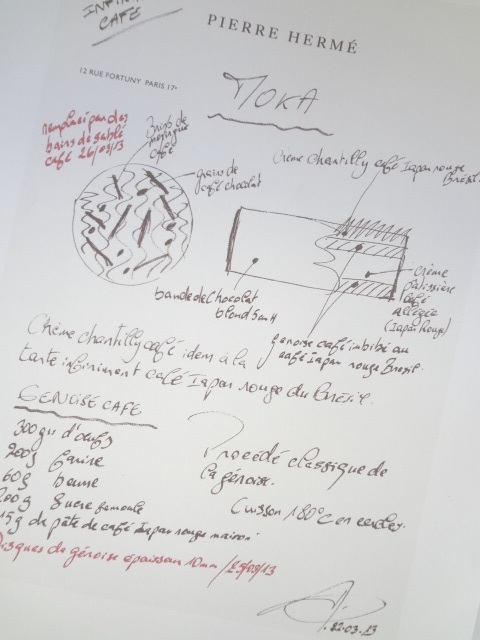 INFINI
CAFÉ
PIERRE HERMÉ
12 RUE FORTUNY PARIS 17
MOKA
remplacé par des
bains de sablé
café 26/03/13
meringue
café
grains de
café chocolat
Crème chantilly café Iapar rouge
Brésil.
bande de chocolat
blond 5cm H
crème
patissière
café
allégée
(Iapar Rouge)
génoise café imbibé au
café Iapar rouge Brésil.
Crème chantilly café idem à la
tarte infiniment café Iapar rouge du Brésil.
GENOISE CAFE
300gr d'œufs
200g farine
60g beurre
200g Sucre semoule
15g de pâte de café Iapar rouge maison
Disques de génoise épaisseur 10mm / 25/03/13
Procédé classique de
la génoise.
Cuisson 180°C en cercles.
22.03.13